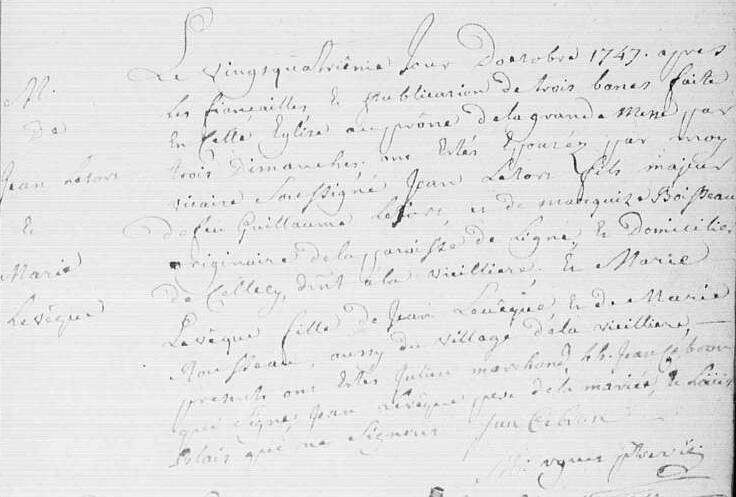 M.
De
Jean Letors
Et
Marie
Levêque
Le vingsquatriême Jour Doctobre 1747. apres
les fiançailles Et publication de trois bans faite
En Cette Eglise au prône de la grande Messe par
trois Dimanches, ont Estés Epousez par moy
vicaire Soussigné Jean Letors fils majeur
de feu Guillaume Letors et de Boisseau
originaire de la paroisse de Ligné, Et Domicilié
De Cellecy, à la vieilliere, Et Marie
Levêque fille de Jean Levêque, Et de Marie
Rousseau, aussy du village de la vieilliere,
presents ont Estés Julien marchand, Jean
qui Signe, Jean Levêque pere de la mariée, Et Loüis
Blais qui ne Signent